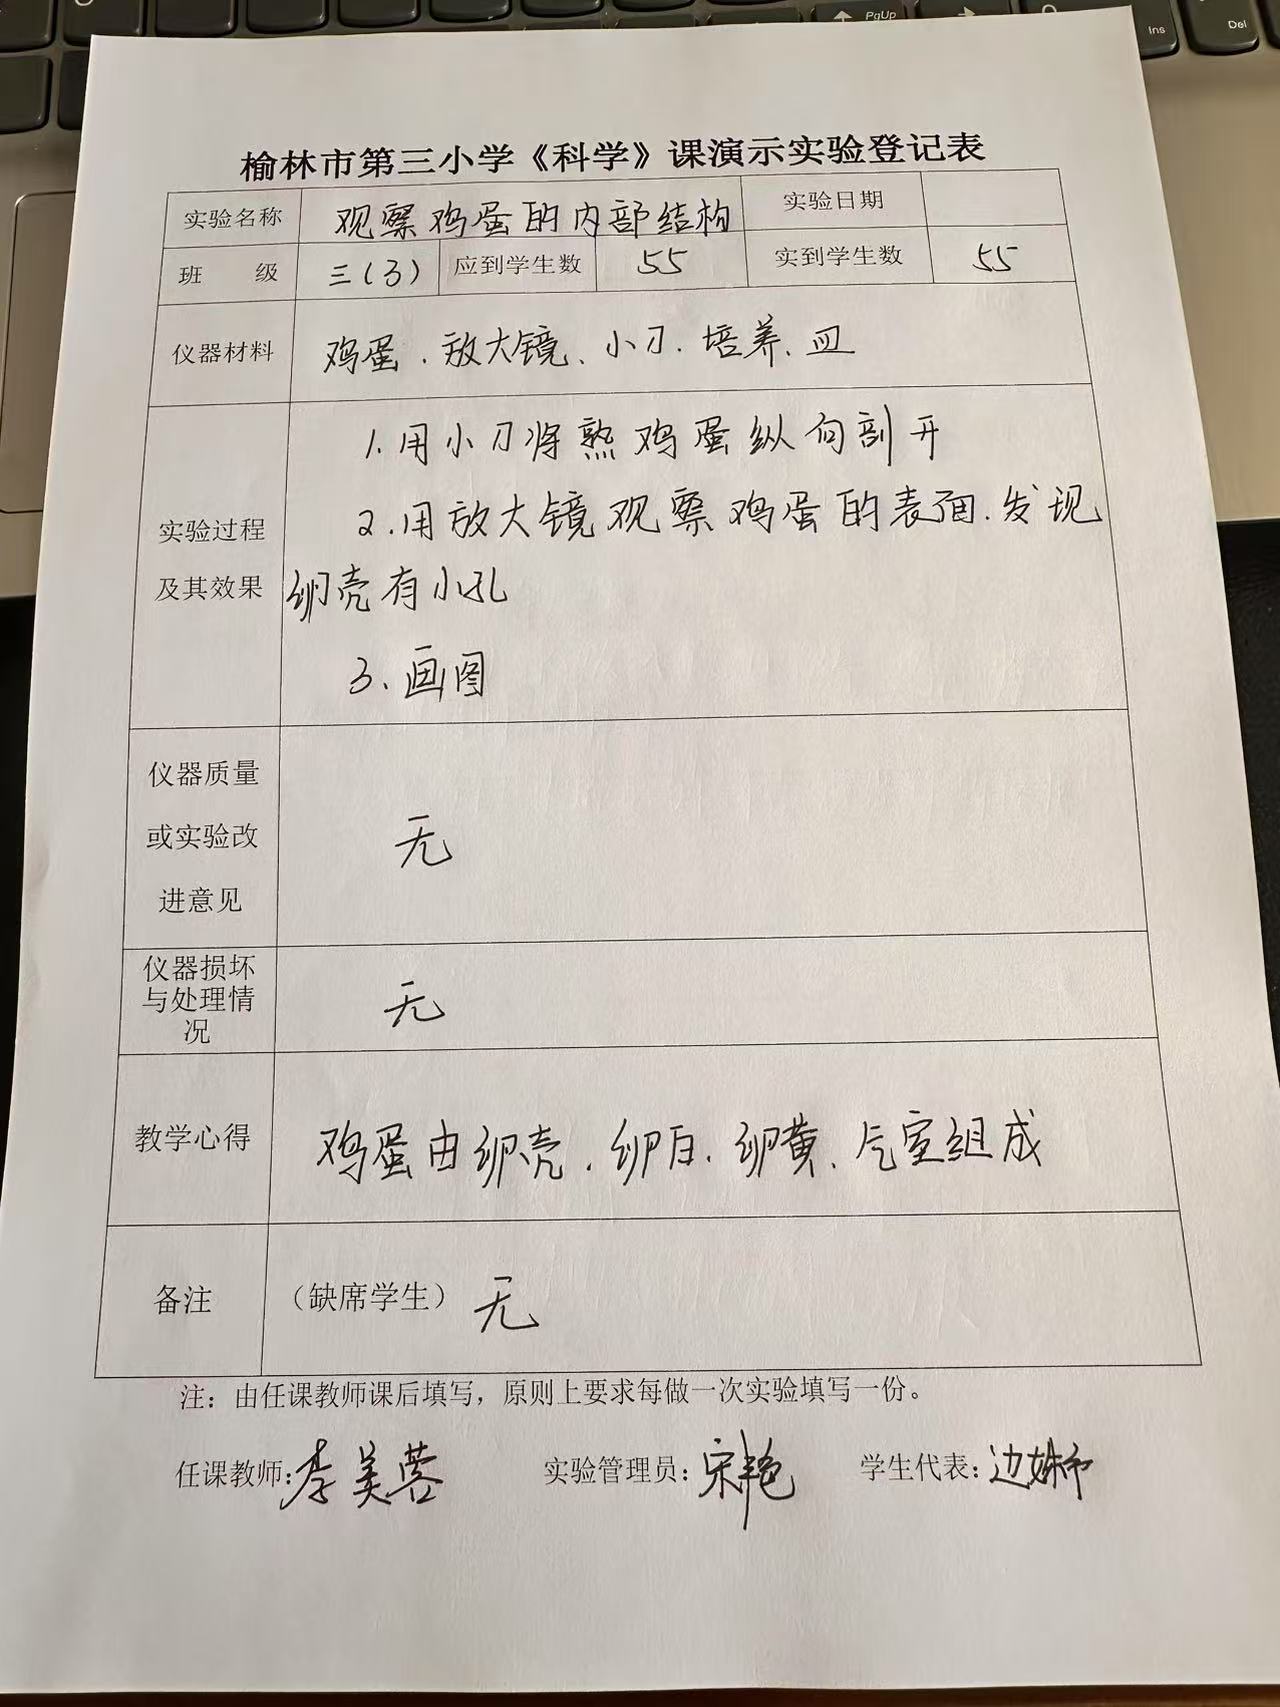 PgUp
Ins
Del
榆林市第三小学《科学》课演示实验登记表
实验名称 观察鸡蛋的内部结构 实验日期
班 级 三(3) 应到学生数 55 实到学生数 55
仪器材料 鸡蛋、放大镜、小刀、培养、皿
1.用小刀将熟鸡蛋纵向剖开
2.用放大镜观察鸡蛋的表面、发现
实验过程
及其效果 卵壳有小孔
3、画图
仪器质量
或实验改
进意见
无
仪器损坏
与处理情
况
无
教学心得 鸡蛋由卵壳、卵白、卵黄、气室组成
备注 (缺席学生) 无
注：由任课教师课后填写，原则上要求每做一次实验填写一份。
任课教师:李美蓉 实验管理员:宋艳 学生代表:边